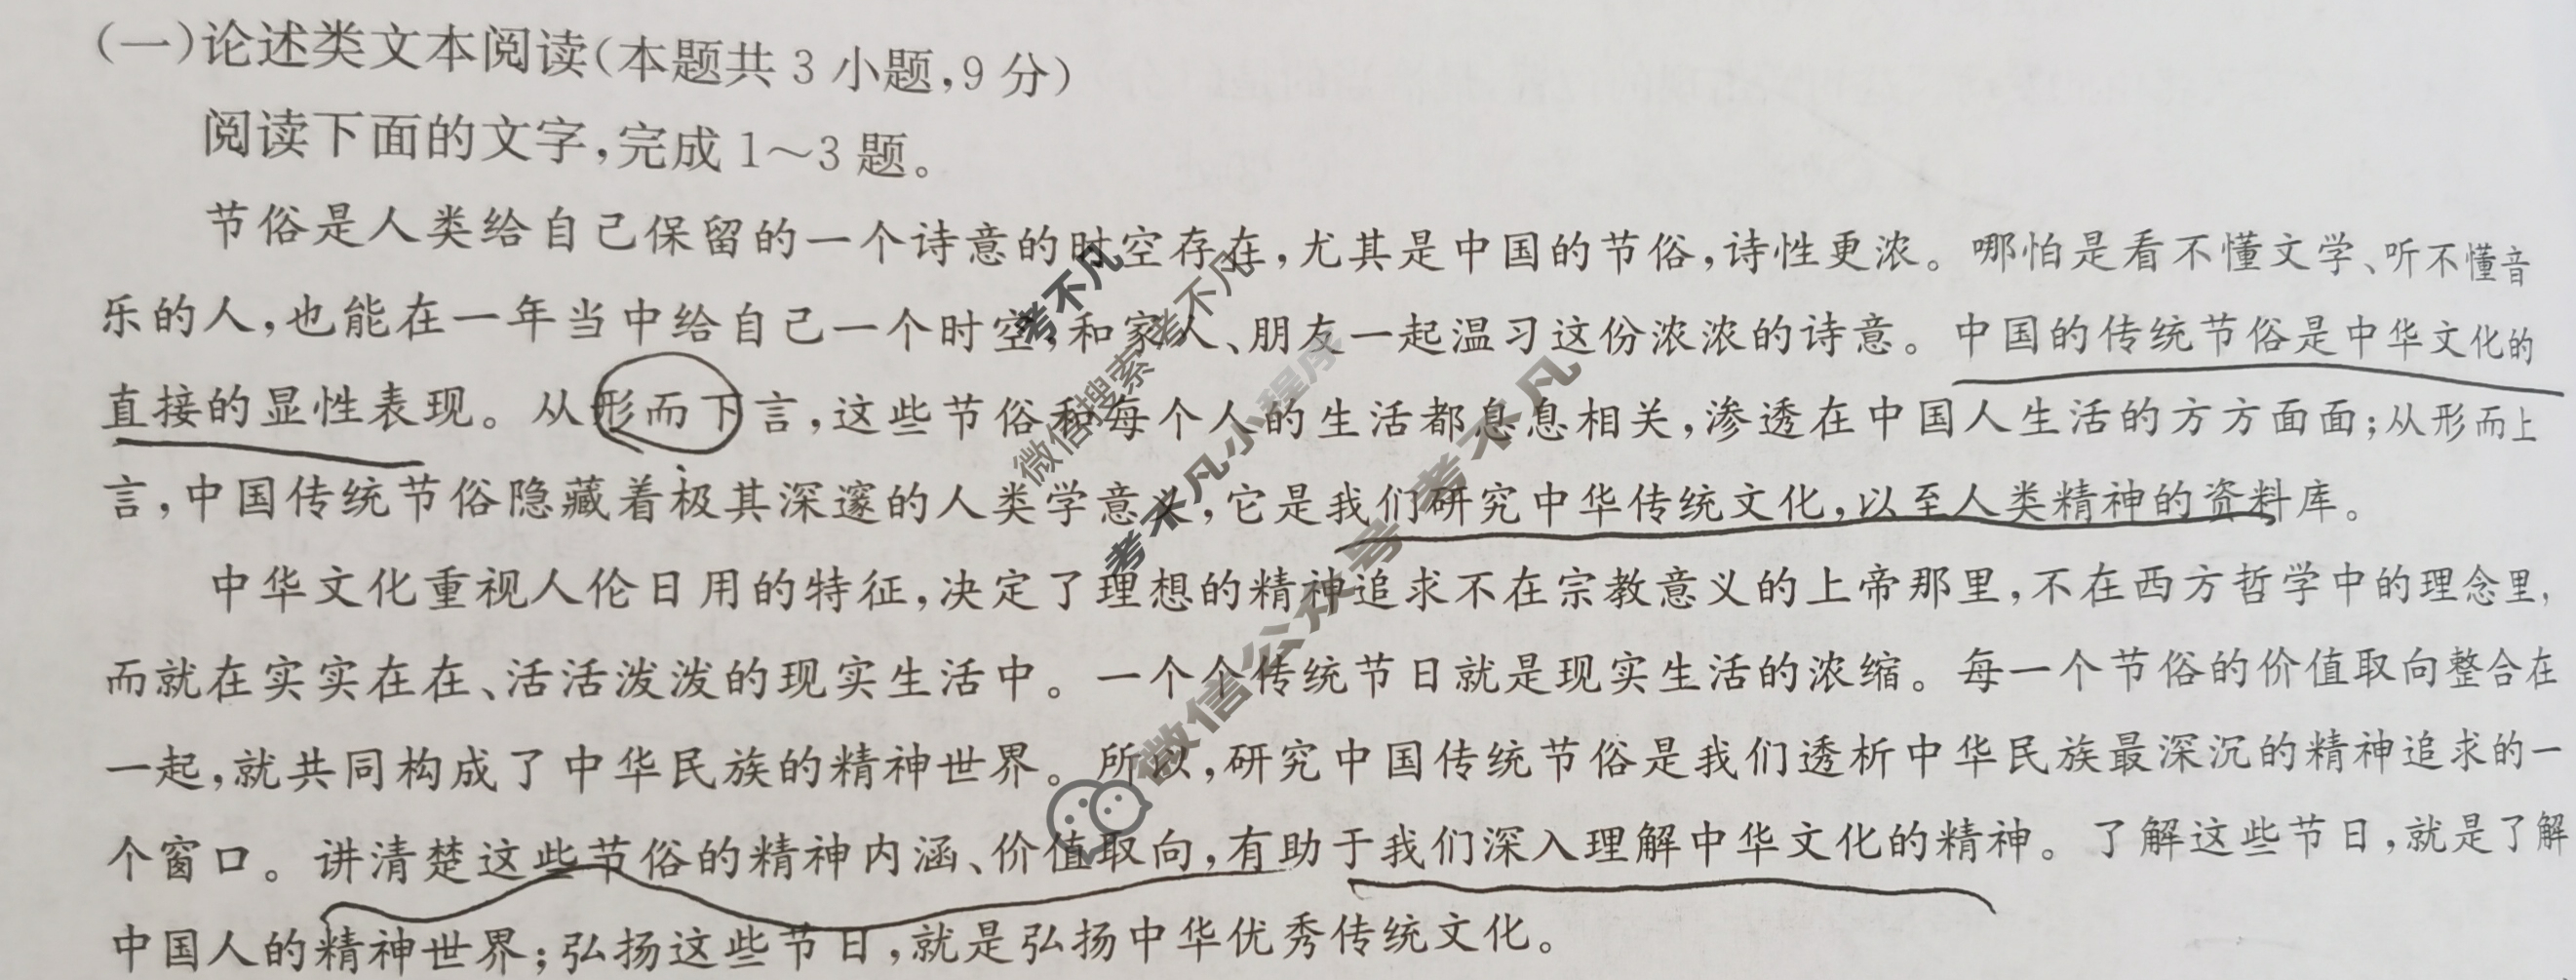 (一)论述类文本阅读(本题共3小题,9分)
阅读下面的文字,完成1～3题。
节俗是人类给自己保留的一个诗意的时空存在,尤其是中国的节俗,诗性更浓。哪怕是看不懂文学、听不懂音
乐的人,也能在一年当中给自己一个时空,和家人、朋友一起温习这份浓浓的诗意。中国的传统节俗是中华文化的
直接的显性表现。从形而下言,这些节俗和每个人的生活都息息相关,渗透在中国人生活的方方面面;从形而上
言,中国传统节俗隐藏着极其深邃的人类学意义,它是我们研究中华传统文化,以至人类精神的资料库。
中华文化重视人伦日用的特征,决定了理想的精神追求不在宗教意义的上帝那里,不在西方哲学中的理念里,
而就在实实在在、活活泼泼的现实生活中。一个个传统节日就是现实生活的浓缩。每一个节俗的价值取向整合在
一起,就共同构成了中华民族的精神世界。所以,研究中国传统节俗是我们透析中华民族最深沉的精神追求的一
个窗口。讲清楚这些节俗的精神内涵、价值取向,有助于我们深入理解中华文化的精神。了解这些节日,就是了解
中国人的精神世界;弘扬这些节日,就是弘扬中华优秀传统文化。
考不凡
微信搜索 考不凡
考不凡小程序
微信公众号 考不凡